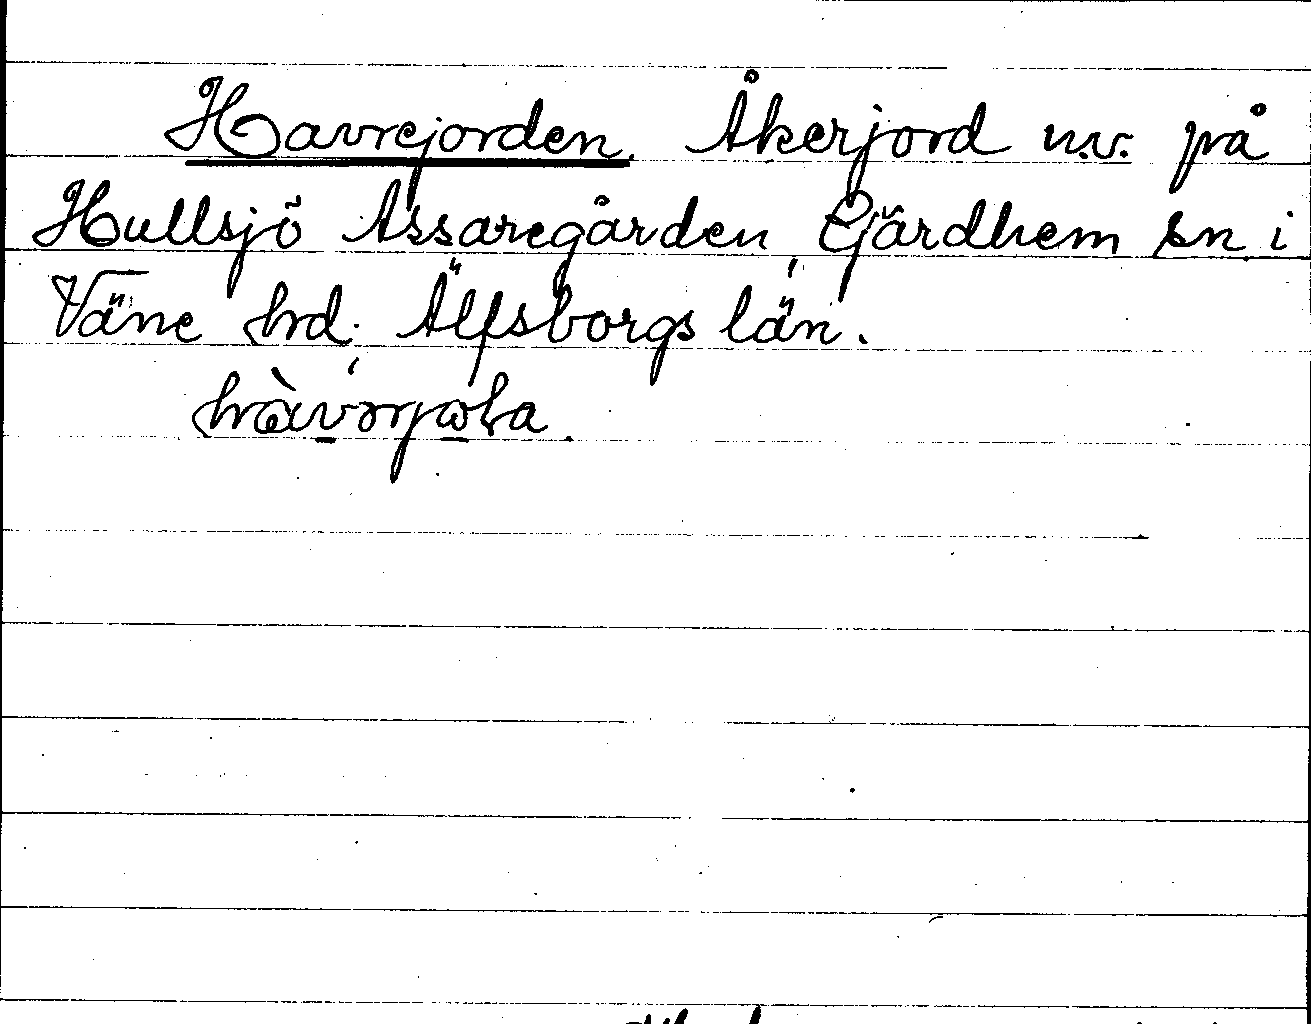 Havrejorden. Åkerjord n.v. på
Hullsjö Assaregården, Gärdhem sn i
Väne hd, Älfsborgs län.